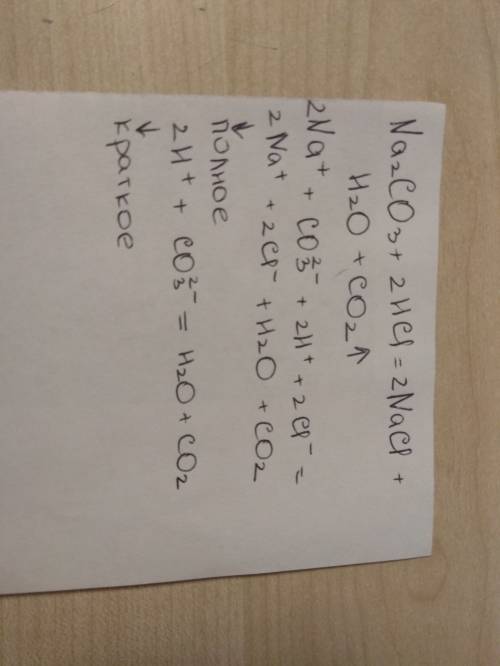 Na₂CO₃ + 2HCl = 2NaCl +
H₂O + CO₂↑
2Na⁺ + CO₃²⁻ + 2H⁺ + 2Cl⁻ =
2Na⁺ + 2Cl⁻ + H₂O + CO₂
↓
полное
2H⁺ + CO₃²⁻ = H₂O + CO₂
↓
краткое